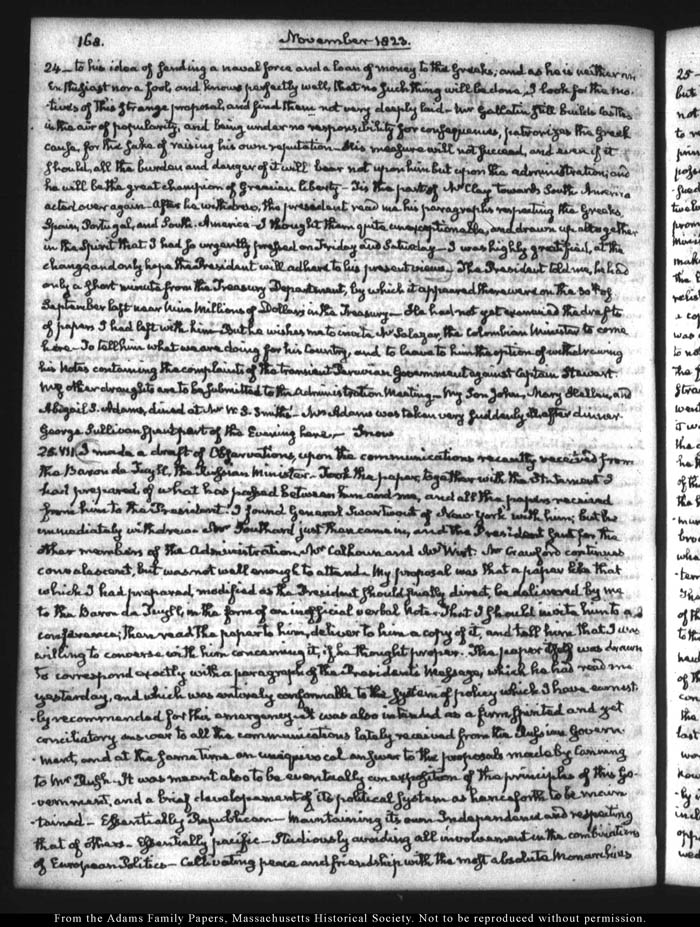 168. November 1823.
24_ to his idea of sending a naval force and a loan of money to the Greeks; and as he is neither an
Enthusiast nor a fool, and knows perfectly well, that no such thing will be done, I look for the mo-
tives of this strange proposal, and find them not very deeply laid_ Mr Gallatin still builds Castles
in the air of popularity, and being under no responsibility for consequences, patronizes the Greek
cause, for the sake of raising his own reputation_ His measure will not succeed, and even if it
should, all the burden and danger of it will bear not upon him but upon the administration; and
he will be the great champion of Grecian liberty_ Tis the part of Mr Clay towards South America
acted over again_ After he withdrew, the president read me his paragraphs respecting the Greeks,
Spain, Portugal, and South-America_ I thought them quite unexceptionable, and drawn up altogether
in the Spirit that I had so urgently pressed on Friday and Saturday_ I was highly gratified, at the
change, and only hope the President will adhere to his present views_ The President told me, he had
only a short minute from the Treasury Department, by which it appeared there were on the 30th of
September last near nine Millions of Dollars in the Treasury_ He had not yet examined the drafts
of papers I had left with him_ But he wishes me to invite Mr Salazar, the Colombian Minister to come
here_ To tell him what we are doing for his Country, and to leave to him the option of withdrawing
his Notes containing the complaints of the transient Peruvian Government against Captain Stewart.
My other draughts are to be submitted to the Administration Meeting_ My Son John, Mary Hellen, and
Abigail S. Adams, dined at Mr W. S. Smith's_ Mrs Adams was taken very suddenly ill, after dinner.
George Sullivan spent part of the Evening here._ Snow
25. VII. I made a draft of Observations, upon the communications recently received from
the Baron de Tuyll, the Russian Minister_ Took the paper, together with the Statement I
had prepared of what has passed between him and me, and all the papers received
from him to the President. I found General Swartwout of New York with him; but he
immediately withdrew. Mr Southard just then came in, and the President sent for the
other members of the Administration, Mr Calhoun and Mr Wirt. Mr Crawford continues
convalescent, but was not well enough to attend_ My proposal was that a paper like that
which I had prepared, modified as the President should finally direct, be delivered by me
to the Baron de Tuyll, in the form of an inofficial verbal Note_ That I should invite him to a
conference; then read the paper to him, deliver to him a copy of it, and tell him that I was
willing to converse with him concerning it, if he thought proper. The paper itself was drawn
to correspond exactly with a paragraph of the President's Message, which he had read me
yesterday, and which was entirely conformable to the System of policy which I have earnest
-ly recommended for this emergency_ It was also intended as a firm, spirited and yet
conciliatory answer to all the communications lately received from the Russian Govern-
-ment, and at the same time an unequivocal answer to the proposals made by Canning
to Mr Rush_ It was meant also to be eventually an exposition of the principles of this Go-
-vernment, and a brief developement of its political System as henceforth to be main
-tained_ Essentially Republican_ Maintaining its own Independence and respecting
that of others_ Essentially pacific_ Studiously avoiding all involvement in the combinations
of European Politics_ Cultivating peace and friendship with the most absolute Monarchies
From the Adams Family Papers, Massachusetts Historical Society. Not to be reproduced without permission.